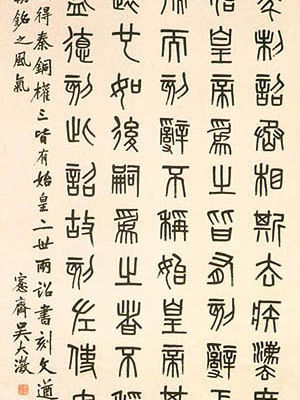 制詔丞相斯去疾灋度
始皇帝為之皆有刻辭
而刻辭不稱始皇帝其
遠也如後嗣為之者不
盛德刻此詔故刻左使毋
得秦銅權三皆有始皇二世兩詔書刻文遒
銘之風氣
愙齋吳大澂